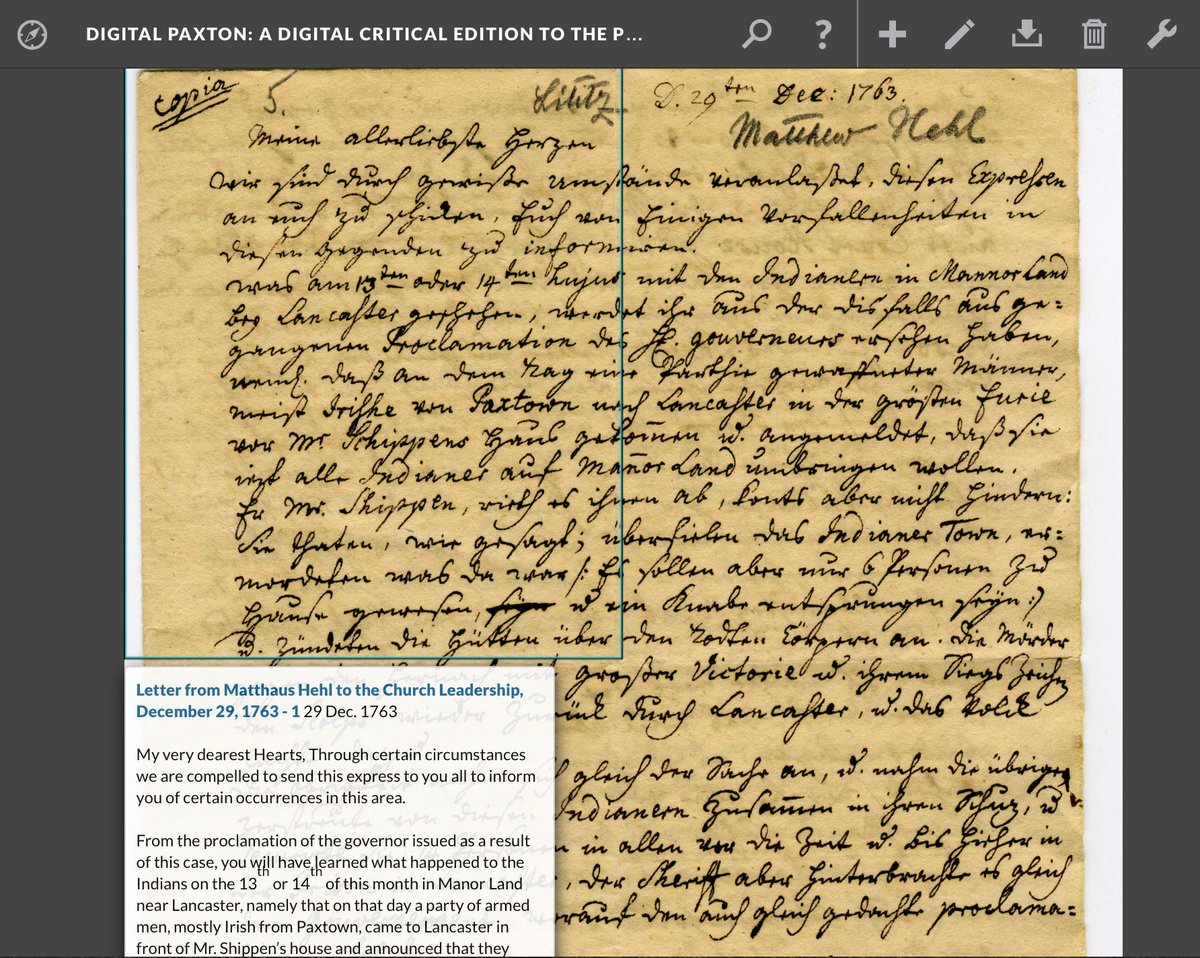 DIGITAL PAXTON: A DIGITAL CRITICAL EDITION TO THE P...
copia 5. Lititz D. 29ten Dec: 1763.
Matthew Hehl
Meine allerliebste Herzen
Wir sind durch gewiße umstände veranlaßet, diesen Expressen
an euch zu schicken, Euch von Einigen Vorfallenheiten in
diesen Gegenden zu informiren.
was am 13ten oder 14ten hujus mit den Indianern in Mannor Land
bey Lancaster geschehen, werdet ihr aus der disfalls aus ge=
gangenen Proclamation des H. gouverneurs ersehen haben,
nemlich daß an dem Tag eine Parthie gewaffneter Männer,
meist Irishe von Paxtown nach Lancaster in der größten Furie
vor Mr Schippens Haus gekom̄en u. angemeldet, daß sie
jezt alle Indianer auf Man̄or Land umbringen wollen.
Er Mr. Shippen, rieth es ihnen ab, konts aber nicht hindern:
Sie thaten, wie gesagt; überfielen das Indianer Town, er=
mordeten was da war /: Es sollen aber nur 6 Personen zu
Hause gewesen, seyn u ein Knabe entsprungen seyn :/
u. zündeten die Hütten über den Todten Cörpern an. Die Mörder
großer Victorie u. ihrem Siegs Zeichen
durch Lancaster, u. das Volck
gleich der Sache an, u. nahm die übrigen
Indianern zusam̄en in ihren Schuz, u
in allen vor die Zeit u. bis hieher in
, der Sheriff aber hinterbrachte es gleich
worauf den auch gleich gedachte proclama=
Letter from Matthaus Hehl to the Church Leadership,
December 29, 1763 - 1 29 Dec. 1763
My very dearest Hearts, Through certain circumstances
we are compelled to send this express to you all to inform
you of certain occurrences in this area.
From the proclamation of the governor issued as a result
of this case, you will have learned what happened to the
Indians on the 13th or 14th of this month in Manor Land
near Lancaster, namely that on that day a party of armed
men, mostly Irish from Paxtown, came to Lancaster in
front of Mr. Shippen's house and announced that they